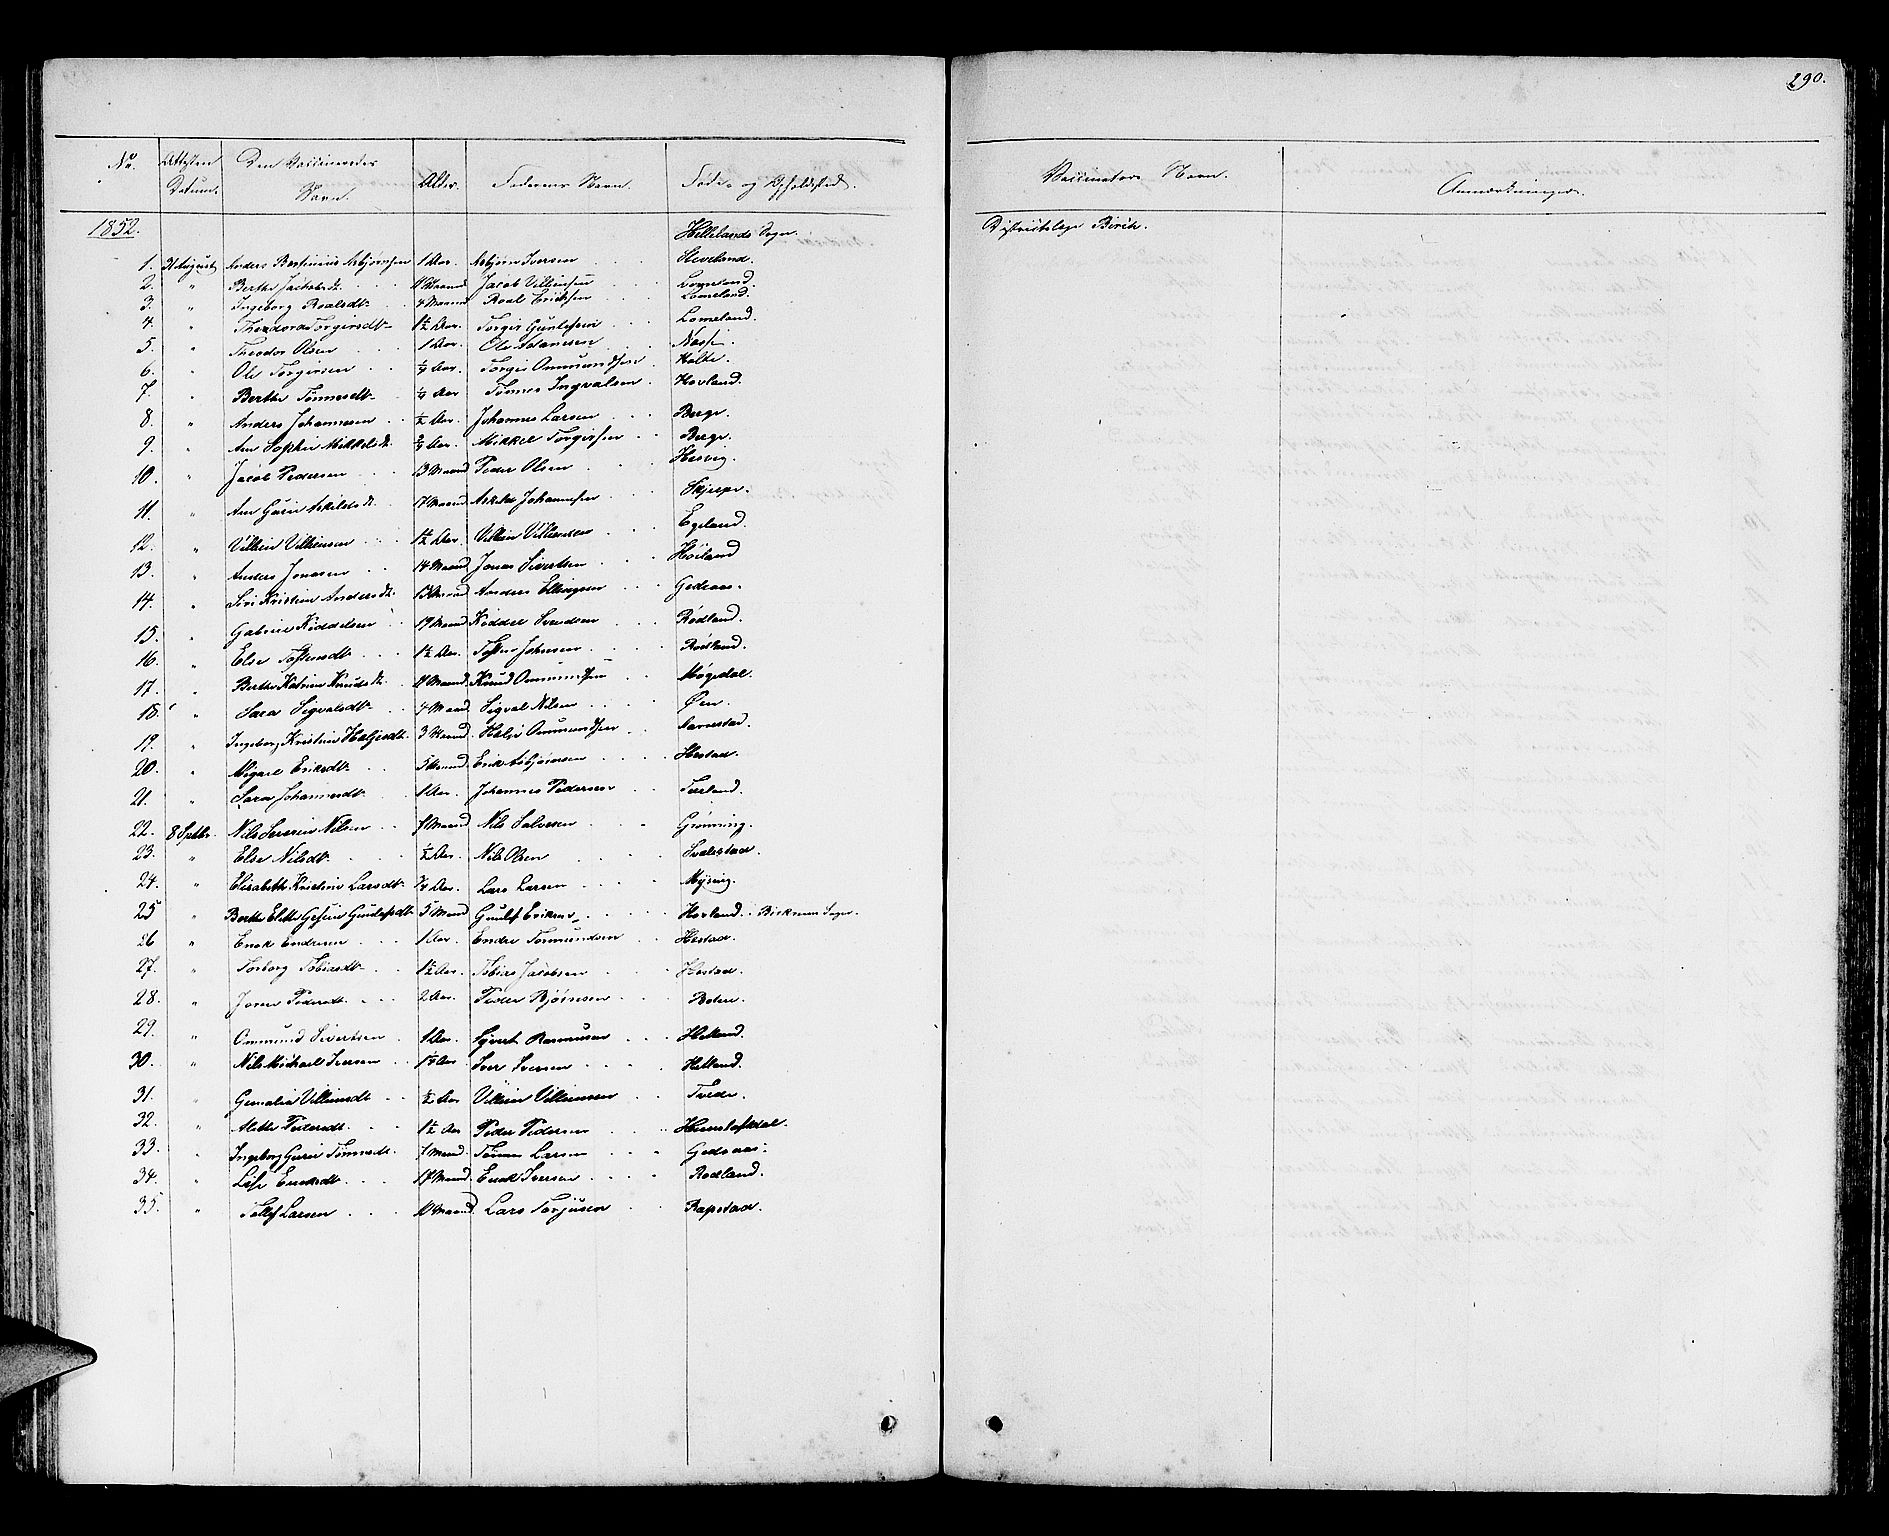 290.
No. Attestens Datum. Den Vaccineredes Navn. Alder. Faderens Navn. Føde- og Opholdssted. Vaccinators Navn. Anmærkninger.
1852. Hellelands Sogn. Districtslæge Birch.
1. 31 August Anders Bertinius Asbjørnsen 1 Aar. Asbjørn Iversen Sleveland.
2. " Berthe Jacobsdt. Maaned Jacob Villumsen
3. " Ingeborg Roalsdt. 4 Maaned Roal Eriksen Lomeland.
4. " Theodora Torgersdt. 1½ Aar. Torgis Gunlefsen Lomeland.
5. " Theodor Olsen 1 Aar. Ole Adamesen Nasse.
6. " Ole Torgersen ¼ Aar. Torger Ommundsen Holte.
7. " Berthe Tønnesdt. ¼ Aar Tønnes Ingvalsen Hovland.
8. " Anders Johannesen ½ Aar. Johannes Larsen Berge.
9. " Ane Sophie Mikkelsdt. ¾ Aar. Mikkel Torgersen Berge.
10. " Jacob Pedersen 13 Maaned Peder Olsen Hesvig.
11. " Ane Gurie Askildsdt. 17 Maaned Askild Johannesen Skjerpe.
12. " Villum Villumsen 1½ Aar. Villum Villumsen Egeland.
13. " Anders Jonasen 14 Maaned Jonas Sivertsen Høiland
14. " Siri Kristine Andersdt. 13 Maaned Anders Ellingsen Gedraas.
15. " Gabriel Kiddelsen 17 Maaned Kiddel Svendsen Rødland.
16. " Else Tostensdt. 1½ Aar. Tosten Johnsen Rødland.
17. " Berthe Katrine Knudsdt. 11 Maaned Knud Ommundsen Møgedal.
18. " Sara Sigvalsdt. 4 Maaned. Sigval Nilsen Øen.
19. " Ingeborg Kristine Helgesdt. 3 Maaned. Helge Ommundsen Aarrestad.
20. " Megarl Eriksdt. 5 Maaned. Erik Asbjørnsen Hestad.
21. " Sara Johannesdt. 1 Aar. Johannes Pedersen Terland.
22. 8 Septbr. Nils Severin Nilsen Maaned Nils Salvesen Grønning.
23. " Else Nilsdt. ½ Aar. Nils Olsen Svalestad.
24. " Elisabeth Kristine Larsdt. ¾ Aar. Lars Larsen Mysing.
25 " Berthe Gesine Gunlefsdt. 5 Maaned Gunlef Eriksen Hovland. Birkrem Sogn.
26 " Enok Endresen 1 Aar. Endre Tormundsen Hestad.
27. " Torborg Tobiasdt. 1½ Aar. Tobias Jacobsen Hestad.
28. " Joren Pedersdt. 2 Aar. Peder Bjørnsen
29. " Ommund Sivertsen 1 Aar. Syvert Rasmusen Helland.
30. " Nils Michael Iversen 1¼ Aar Iver Iversen Helland.
31. " Gemalie Villumsdt. ½ Aar Villum Villumsen Tvede.
32. " Alette Pedersdt. 1½ Aar Peder Pedersen
33. " Ingeborg Gurie Tønnesdt. 7 Maaned. Tønnes Larsen Gedraas.
34. " Lise Enoksdt. 17 Maaned. Enok Iversen Rødland.
35. " Tollef Larsen 11 Maaned Lars Torjusen Rapstad.